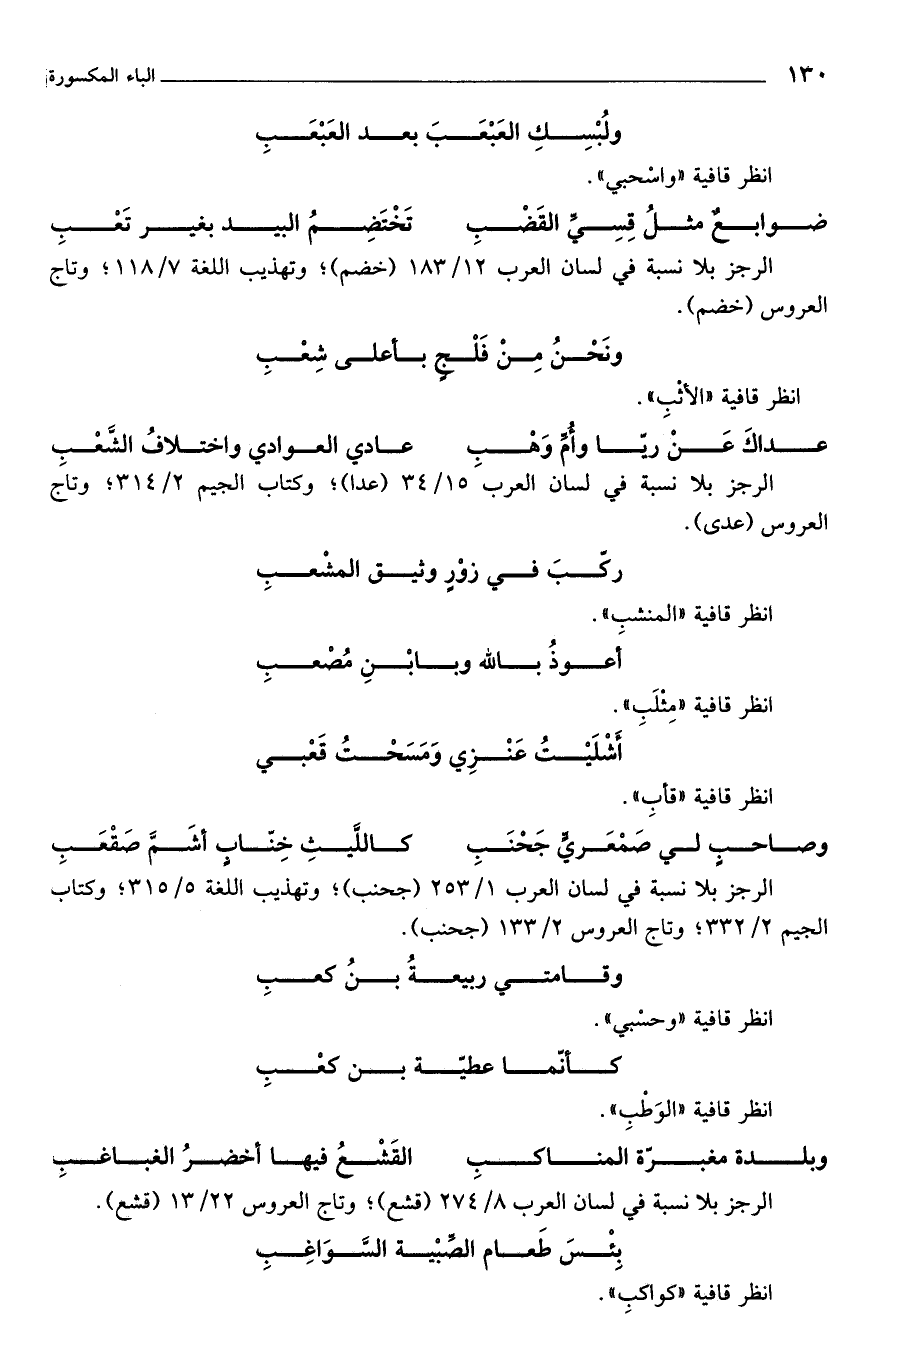 ١٣٠ الباء المكسورة
ولُبْسِكِ العَبْعَبَ بعد العَبْعَبِ
انظر قافية «واسْحبي».
ضوابعٌ مثلُ قِسِيِّ القَضْبِ تَخْتَضِمُ البيد بغير تَعْبِ
الرجز بلا نسبة في لسان العرب ١٢/ ١٨٣ (خضم)؛ وتهذيب اللغة ٧/ ١١٨؛ وتاج
العروس (خضم).
ونَحْنُ مِنْ فَلْجٍ بأعلى شِعْبِ
انظر قافية «الأثْبِ».
عداكَ عَنْ ريّا وأُمِّ وَهْبِ عادي العوادي واختلافُ الشَّعْبِ
الرجز بلا نسبة في لسان العرب ١٥/ ٣٤ (عدا)؛ وكتاب الجيم ٢/ ٣١٤؛ وتاج
العروس (عدى).
ركّبَ في زوْرٍ وثيق المشْعبِ
انظر قافية «المنشبِ».
أعوذُ بالله وبابْنِ مُصْعبِ
انظر قافية «مِثْلَبِ».
أَشْلَيْتُ عَنْزِي وَمَسَحْتُ قَعْبي
انظر قافية «قأبِ».
وصاحبٍ لي صَمْعَريٍّ جَحْنَبِ كاللَّيثِ خِنّابٍ أشَمَّ صَقْعَبِ
الرجز بلا نسبة في لسان العرب ١/ ٢٥٣ (جحنب)؛ وتهذيب اللغة ٥/ ٣١٥؛ وكتاب
الجيم ٢/ ٣٣٢؛ وتاج العروس ٢/ ١٣٣ (جحنب).
وقامتي ربيعةُ بنُ كعبِ
انظر قافية «وحسْبي».
كأنّما عطيّة بن كعْبِ
انظر قافية «الوَطْبِ».
وبلدة مغبرّة المناكبِ القَشْعُ فيها أخضرُ الغباغبِ
الرجز بلا نسبة في لسان العرب ٨/ ٢٧٤ (قشع)؛ وتاج العروس ٢٢/ ١٣ (قشع).
بِئْسَ طَعام الصِّبْية السَّوَاغِبِ
انظر قافية «كواكبِ».